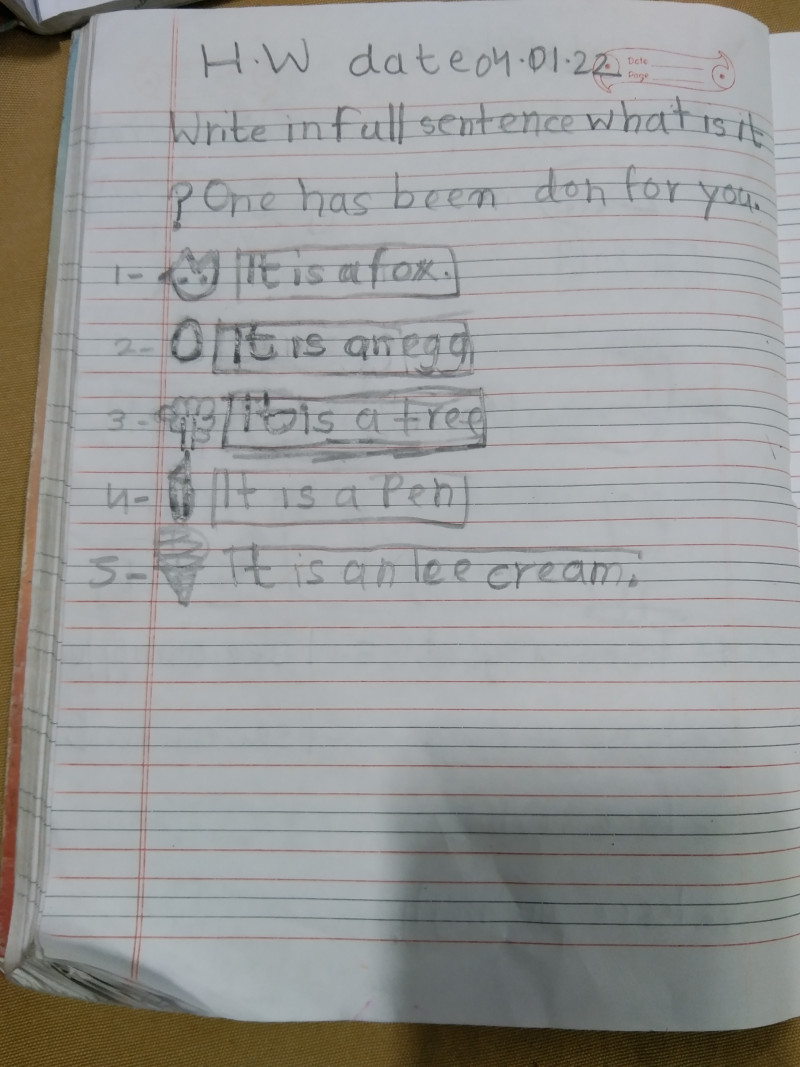 H.W date 04.01.22
Date
Page
Write in full sentence what is it
? One has been don for you.
1- It is a fox.
2- It is an egg
3- It is a tree
4- It is a Pen
5- It is an Iee cream.